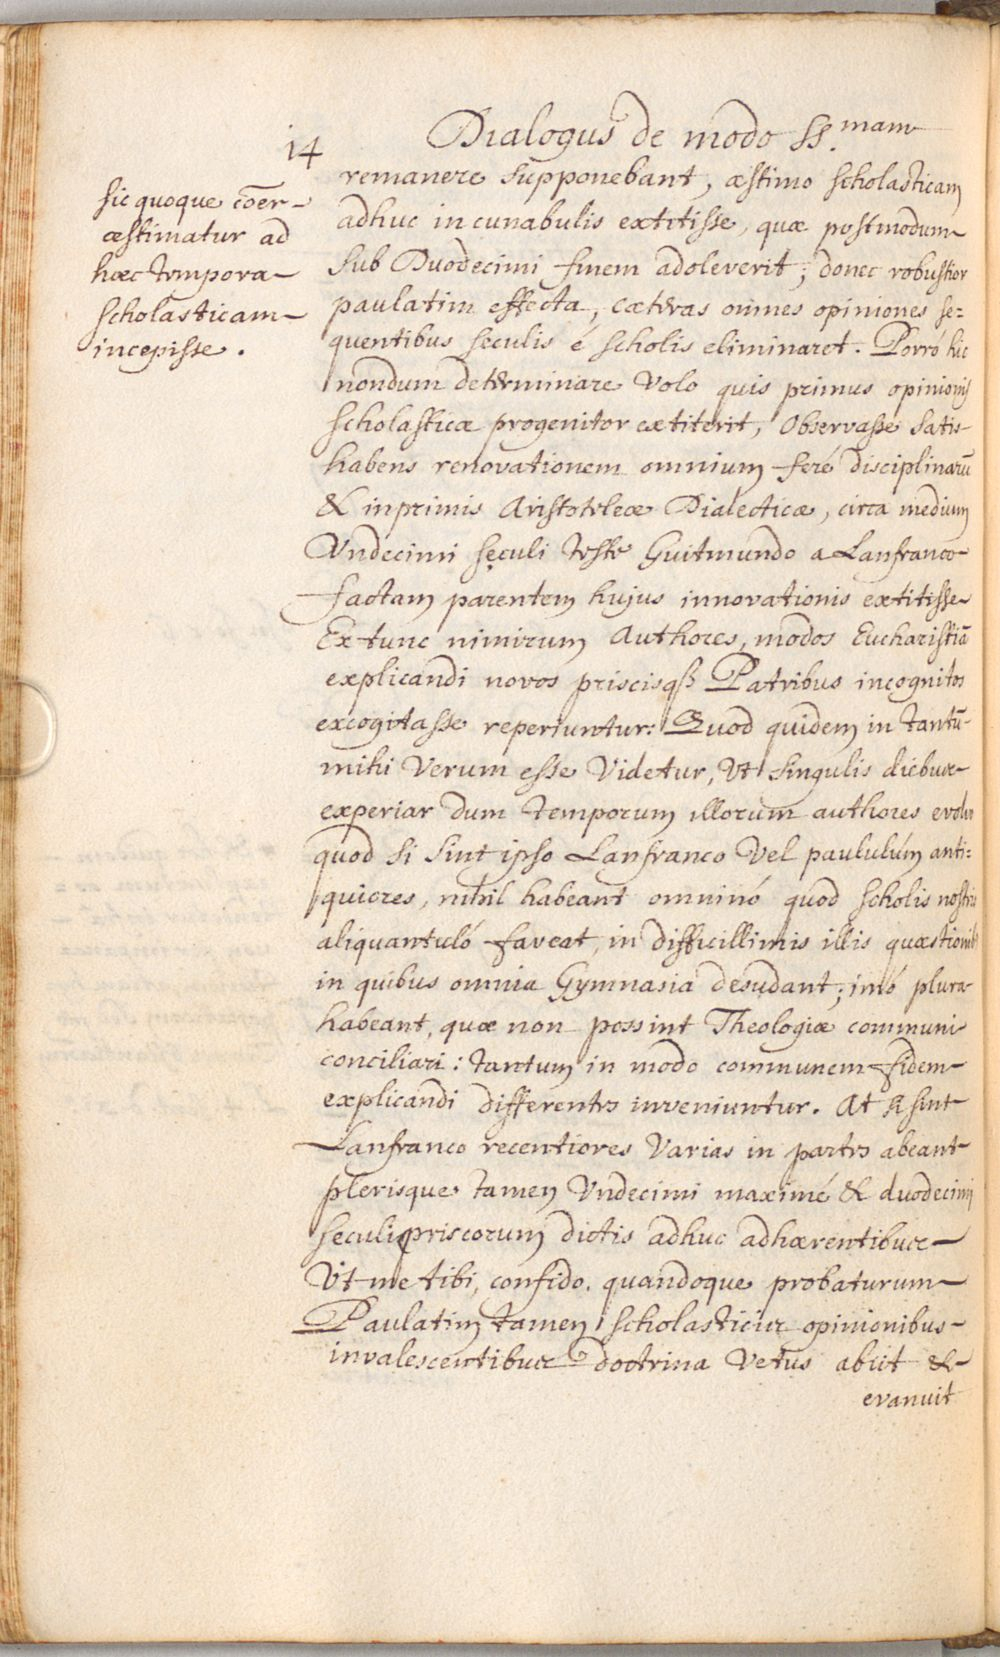 14
Dialogus de modo SS.mam
sic quoque cōer
æstimatur ad
hæc tempora
scholasticam
incepisse.
remanere supponebant, æstimo scholasticam
adhuc in cunabulis extitisse, quæ postmodum
sub Duodecimi finem adoleverit; donec robustior
paulatim effecta, cæteras omnes opiniones se=
quentibus seculis é scholis eliminaret. Porró hic
nondum determinare volo quis primus opinionis
scholasticæ progenitor extiterit, Observasse satis
habens renovationem omnium feré disciplinarū
& inprimis Aristoteleæ Dialecticæ, circa medium
Vndecimi sęculi teste Guitmundo a Lanfranco
factam parentem hujus innovationis extitisse
Ex tunc nimirum Authores, modos Eucharistiā
explicandi novos priscisqꝫ Patribus incognitos
excogitasse reperiuntur: Quod quidem in tantū
mihi Verum esse Videtur, Vt singulis diebus
experiar dum temporum illorum authores evolvo
quod si sint ipso Lanfranco Vel paululúm anti=
quiores, nihil habeant omninó quod scholis nostris
aliquantuló faveat, in difficillimis illis quæstionib
in quibus omnia Gymnasia desudant; imó plura
habeant, quæ non possint Theologiæ communi
conciliari: tantum in modo communem fidem
explicandi differentes inveniuntur. At si sint
Lanfranco recentiores Varias in partes abeant
plerisque tamen Vndecimi maximé & duodecimi
seculi priscorum dictis adhuc adhærentibus
Vt me tibi, confido. quandoque probaturum
Paulatim tamen scholasticis opinionibus
invalescentibus doctrina Vetus abiit &
evanuit